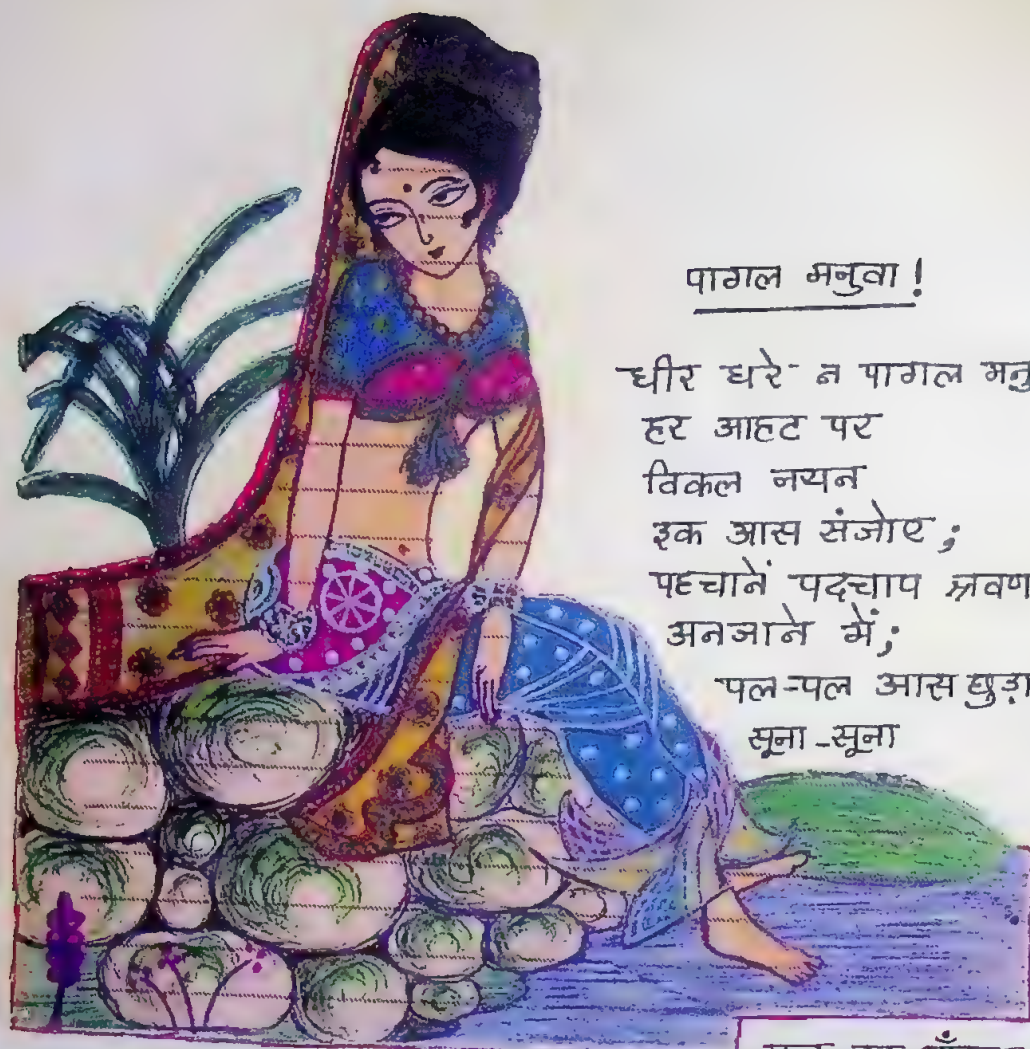 पागल मनुवा !
धीर धरे न पागल मनु
हर आहट पर
विकल नयन
इक आस संजोए ;
पहचानें पदचाप श्रवण
अनजाने में ;
पल-पल आस छुड़ा
सूना-सूना